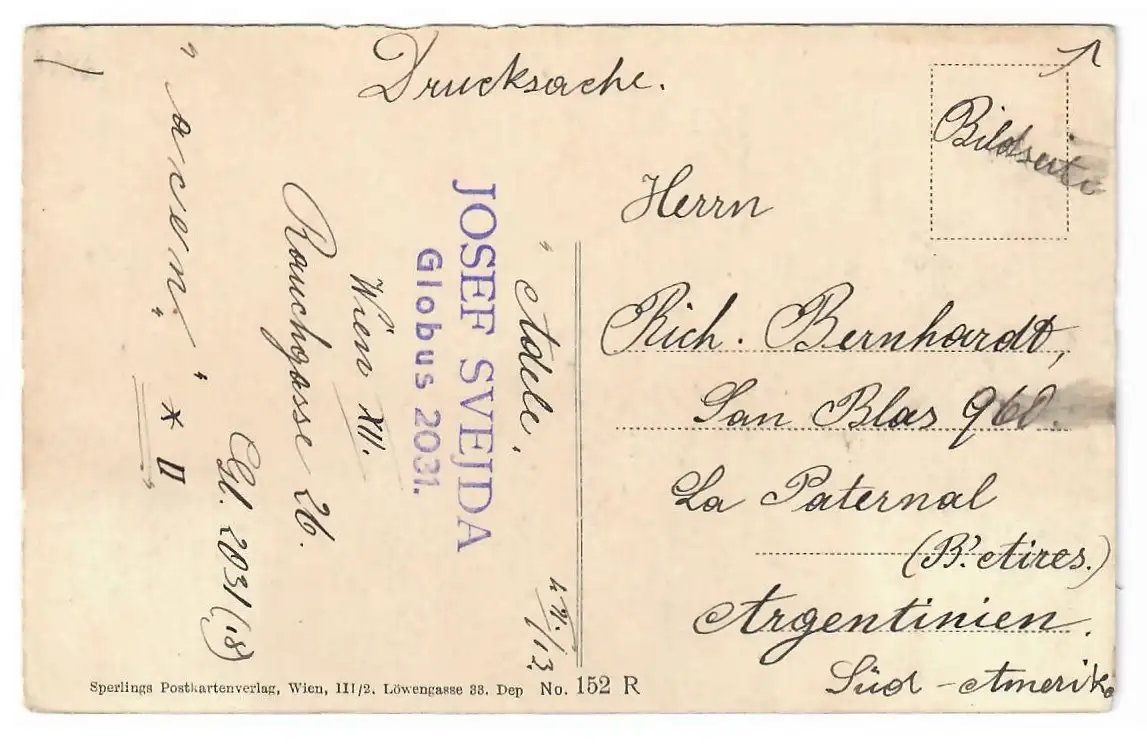 Drucksache.
Bildseite
Herrn
Rich. Bernhardt,
San Blas 960.
La Paternal
(B'. Aires.)
Argentinien.
Süd-Amerika
„Adele,
JOSEF SVEJDA
Globus 2031.
Wien XII.
Rauchgasse 26.
Sperlings Postkartenverlag, Wien, III/2, Löwengasse 33. Dep No. 152 R